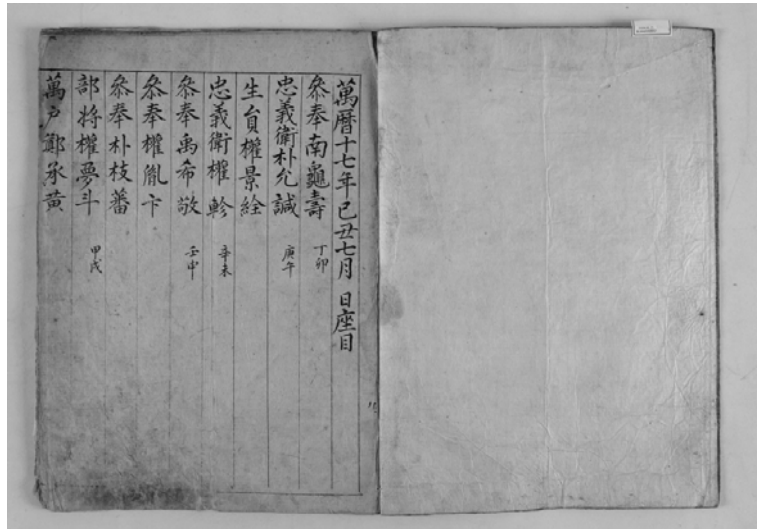 萬曆十七年己丑七月 日座目
叅奉南龜壽 丁卯
忠義衛朴允誠 庚午
生員權景銓
忠義衛權軫 辛未
叅奉禹希敬 壬申
叅奉權胤卞
叅奉朴枝蕃
部將權夢斗 甲戌
萬戶鄭承黃